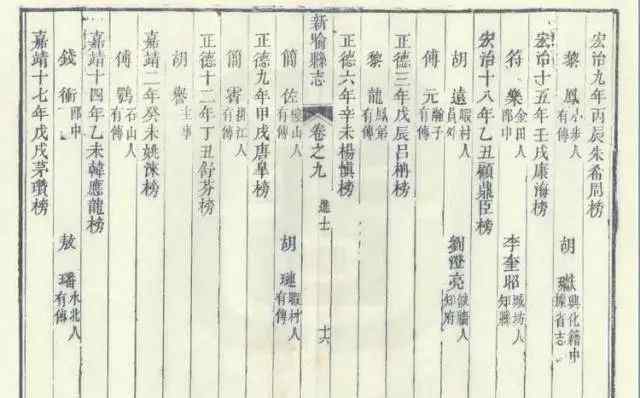 宏治九年丙辰朱希周榜
黎鳳 小步人有傳 胡獻 興化籍中據省志
宏治十五年壬戌康海榜
符樂 金田人郎中 李奎昭 城坊人知縣
宏治十八年乙丑顧鼎臣榜
胡遠 村人員外 劉澄亮 牆人知府
傅元 瀚子有傳
正德三年戊辰呂柟榜
黎龍 鳳弟有傳
正德六年辛未楊慎榜
新喻縣志 卷之九 進士 十六
簡佐 山人有傳 胡璉 暇村人有傳
正德九年甲戌唐皐榜
簡霄 江人有傳
正德十二年丁丑舒芬榜
胡譽 主事
嘉靖二年癸未姚淶榜
傅鶚 石山人有傳
嘉靖十四年乙未韓應龍榜
錢衝 郎中 敖璠 水北人有傳
嘉靖十七年戊戌茅瓚榜